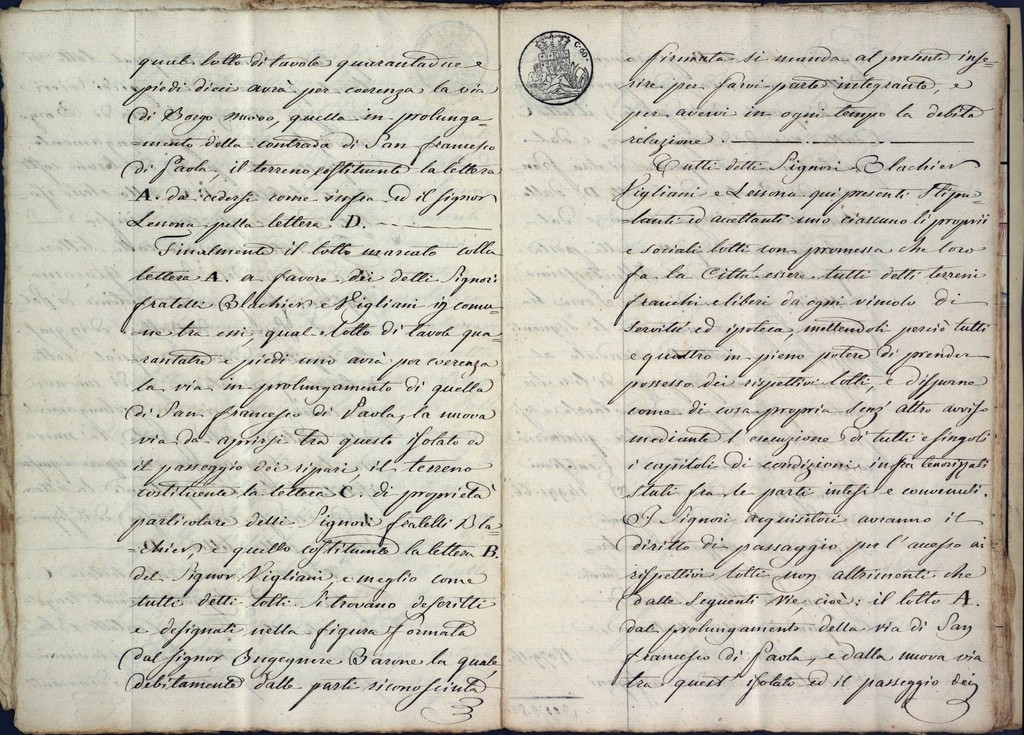 qual lotto di tavole quarantadue e
piedi dieci avrà per coerenza la via
di Borgo nuovo, quella in prolunga=
=mento della contrada di San francesco
di Paola, il terreno costituente la lettera
A. da cedersi come infra ed il signor
Lessona pella lettera D.
Finalmente il lotto marcato colla
lettera A. a favore dei detti Signori
fratelli Blachier e Vigliani in comu=
=ne tra essi, qual lotto di tavole qua=
=rantatre e piedi uno avrà per coerenza
la via in prolungamento di quella
di San francesco di Paola, la nuova
via da aprirsi tra questo isolato ed
il passeggio dei ripari il terreno
costituente la lettera C. di proprietà
particolare delli Signori fratelli Bla=
=chier, e quello costituente la lettera B.
del Signor Vigliani, e meglio come
tutti detti lotti si trovano descritti
e designati nella figura formata
dal signor Ingegnere Barone la quale
debitamente dalle parti riconosciuta
C. 60.
e firmata si manda al presente inse=
rire per farvi parte integrante, e
per avervi in ogni tempo la debita
relazione.
Tutti detti Signori Blachier
Vigliani e Lessona qui presenti stipu=
=lanti ed accettanti uno ciascuno li proprii
e sociali lotti con promessa che loro
fa la Città essere tutti detti terreni
franchi e liberi da ogni vincolo di
servitù ed ipoteca, mettendoli perciò tutti
e quattro in pieno potere di prender
possesso dei rispettivi lotti, e disporne
come di cosa propria senz'altro avviso
mediante l'esecuzione di tutti e singoli
i capitoli di condizioni infra tenorizzati
stati fra le parti intesi e convenuti.
I Signori acquisitori avranno il
diritto di passaggio per l'accesso ai
rispettivi lotti non altrimenti che
dalle seguenti vie, cioè: il lotto A.
dal prolungamento della via di San
francesco di Paola, e dalla nuova via
tra quest'isolato ed il passeggio dei